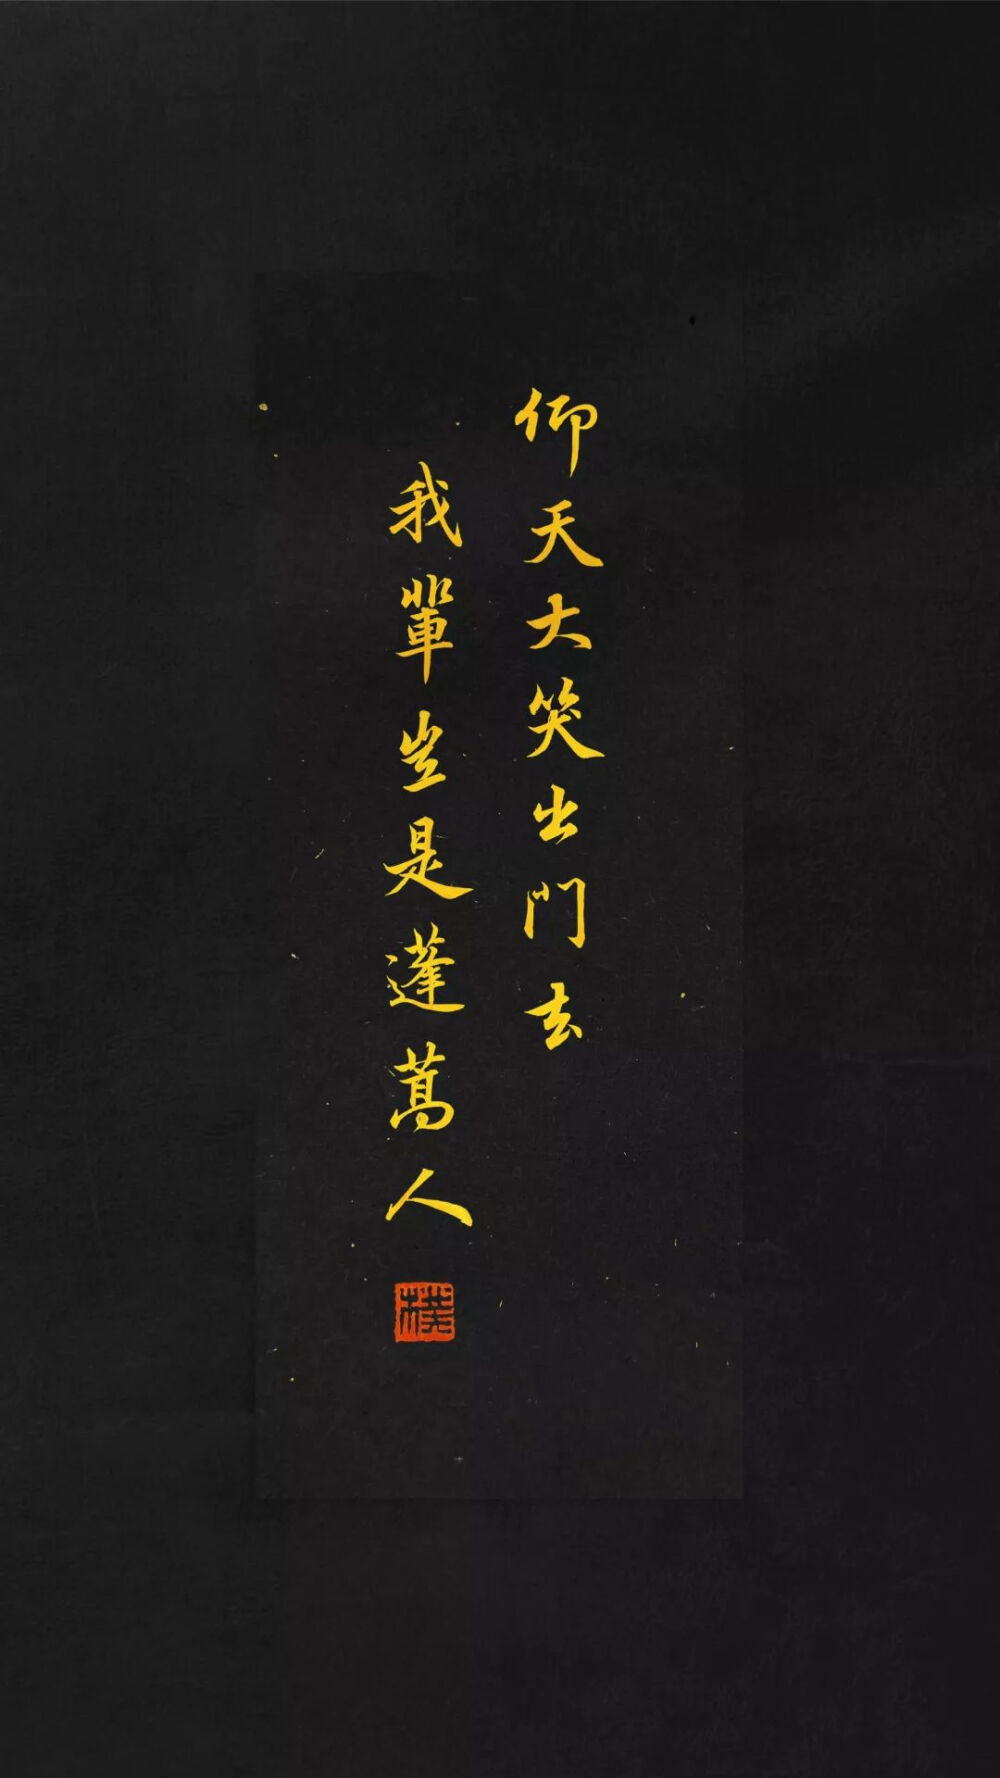 仰天大笑出門去
我輩豈是蓬蒿人